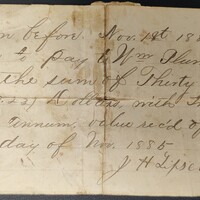 n before Nov. 1st 188
to pay to Wm Plum
the sum of Thirty
Dollars, with
annum, value rec'd of
day of Nov. 1885
J H Lipsc